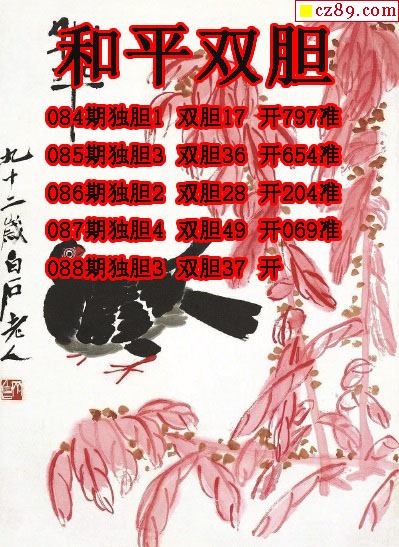 cz89.com
和平双胆
084期独胆1 双胆17 开797准
085期独胆3 双胆36 开654准
086期独胆2 双胆28 开204准
087期独胆4 双胆49 开069准
088期独胆3 双胆37 开
九十二岁白石老人